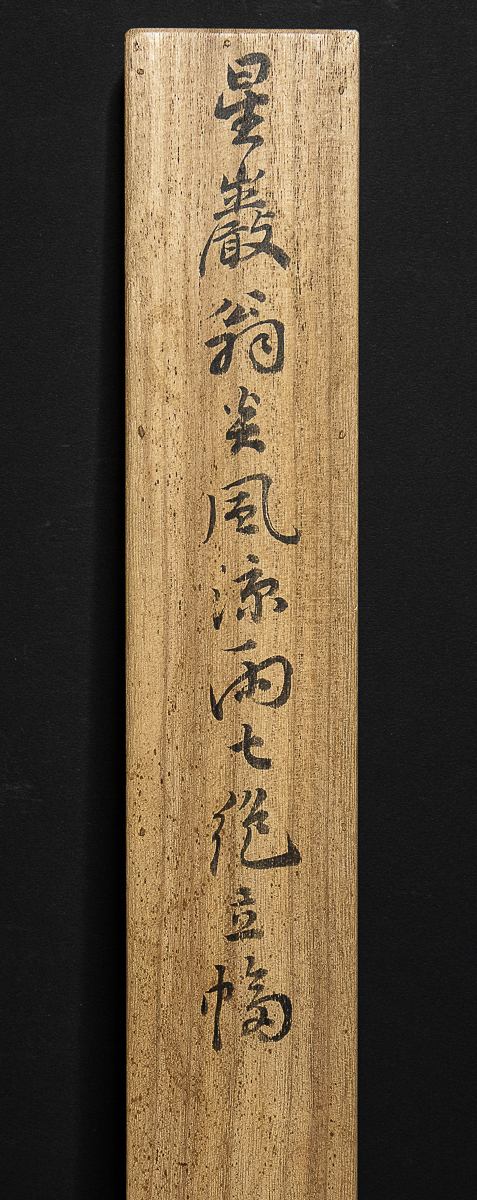 星巖翁炎風涼雨七絶立幅